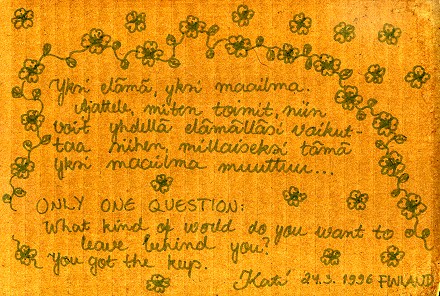 Yksi elämä, yksi maailma.
Ajattele, miten toimit, niin
voit yhdellä elämälläsi vaikut-
taa siihen, millaiseksi tämä
yksi maailma muuttuu...
ONLY ONE QUESTION:
What kind of world do you want to
leave behind you?
You got the keys.
Kati 24.3. 1996 FINLAND